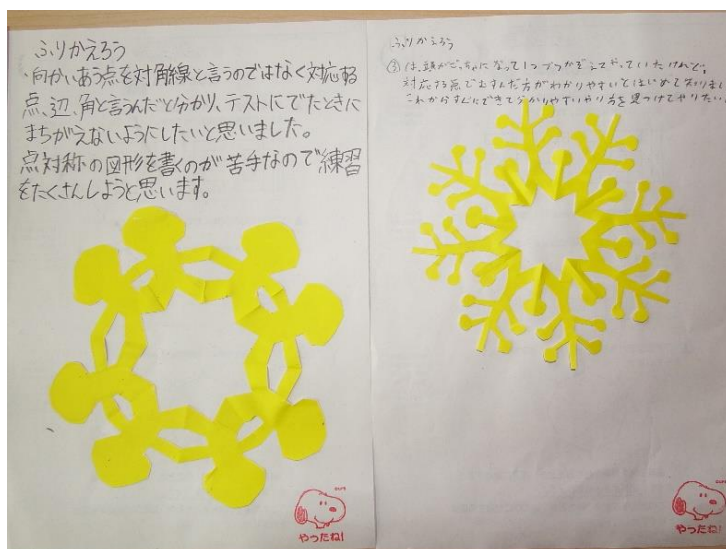 ふりかえろう
・向かいあう点を対角線と言うのではなく対応する
点、辺、角と言うんだと分かり、テストにでたときに
まちがえないようにしたいと思いました。
点対称の図形を書くのが苦手なので練習
をたくさんしようと思います。
やったね!
ふりかえろう
③は、頭がごっちゃになって1つづつかぞえて
対応する点でむすんだ方がわかりやすいとはじめて知りまし
分かりやすいやり方を見つけてやりたい
やったね!